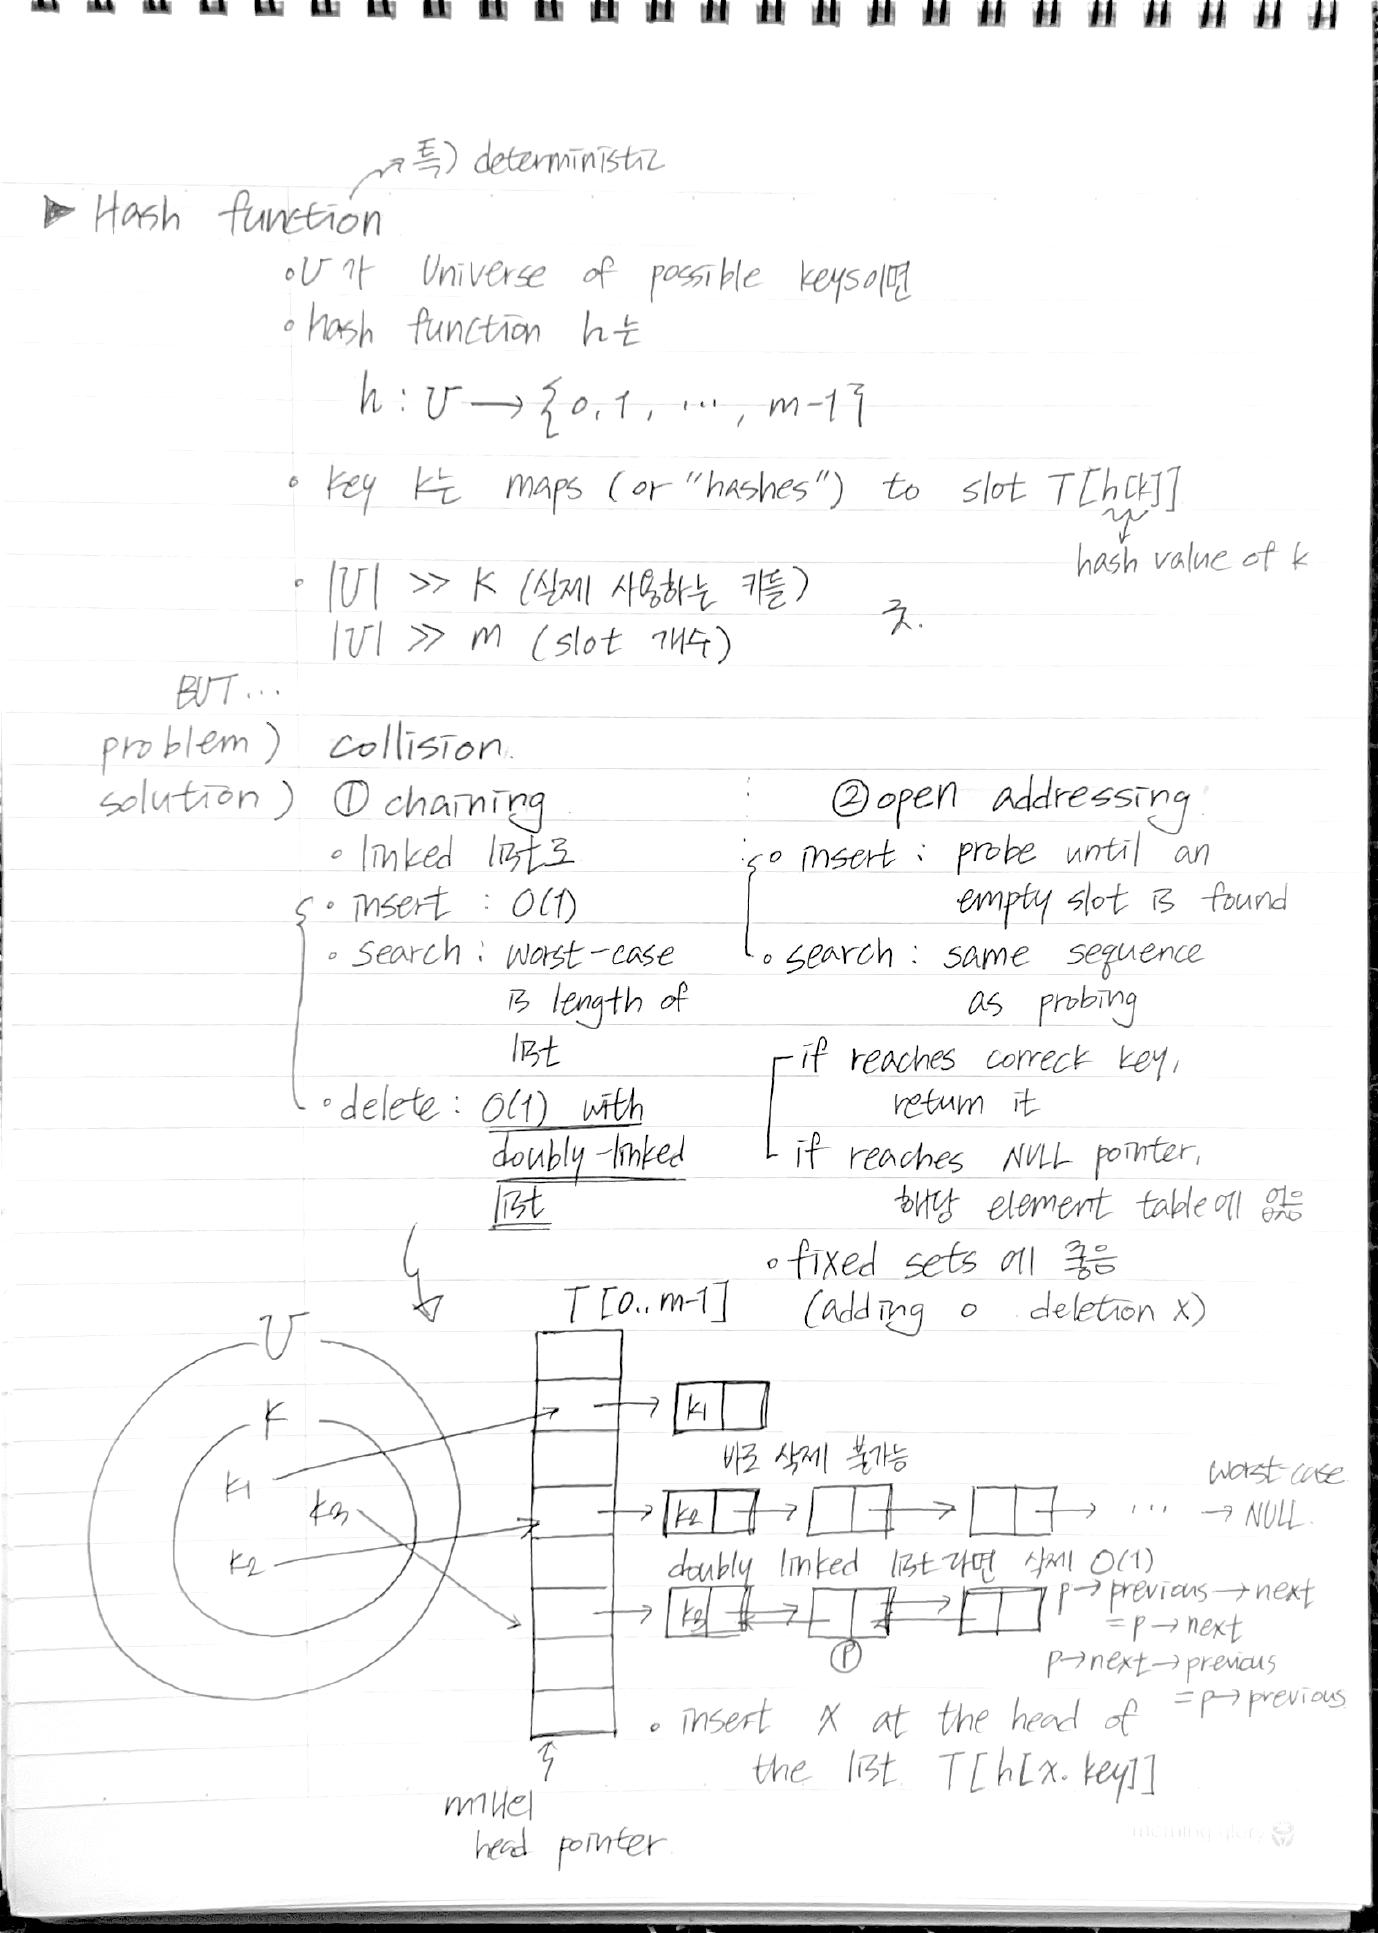 특) deterministic
▶ Hash function
• U가 Universe of possible keys이면
• hash function h는
h : U → {0, 1, ..., m-1}
• key k는 maps (or "hashes") to slot T[h[k]]
hash value of k
• |U| >> K (실제 사용하는 키들)
|U| >> m (slot 개수)
BUT...
problem) collision.
solution) ① chaining
• linked list로
• insert : O(1)
• search : worst-case
is length of
list
• delete : O(1) with
doubly-linked
list
② open addressing
• insert : probe until an
empty slot is found
• search : same sequence
as probing
if reaches correck key,
return it
if reaches NULL pointer,
해당 element table에 없음
• fixed sets에 좋음
(adding o deletion x)
T[0..m-1]
U
K
k1
k3
k2
k1
바로 삭제 불가능
worst-case
k2 ... → NULL.
doubly linked list라면 삭제 O(1)
k3
P
p→previous→next
= p→next
p→next→previous
= p→previous
• insert x at the head of
the list T[h[x.key]]
head pointer
morning glory